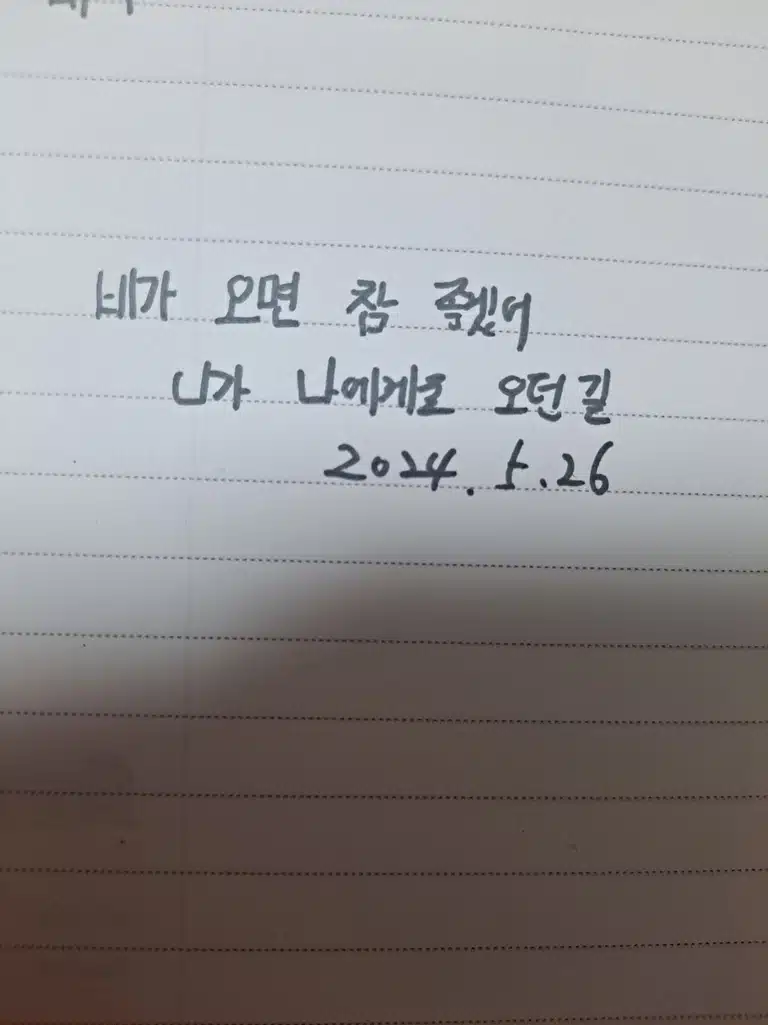 비가 오면 참 좋겠어
니가 나에게로 오던길
2024. 5. 26